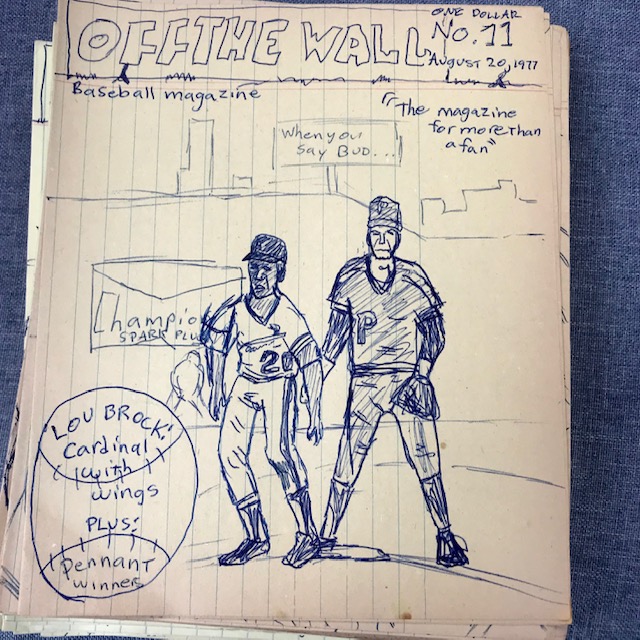 OFF THE WALL
ONE DOLLAR
No. 11
August 20, 1977
Baseball magazine
"The magazine
for more than
a fan"
When you
Say Bud...
Champio
SPARK PLU
P
P
20
LOU BROCK:
Cardinal
with
wings
PLUS:
Pennant
winner